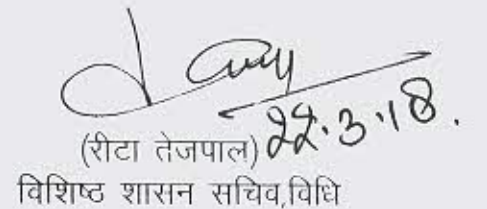 22.3.18.
(रीटा तेजपाल)
विशिष्ठ शासन सचिव,विधि